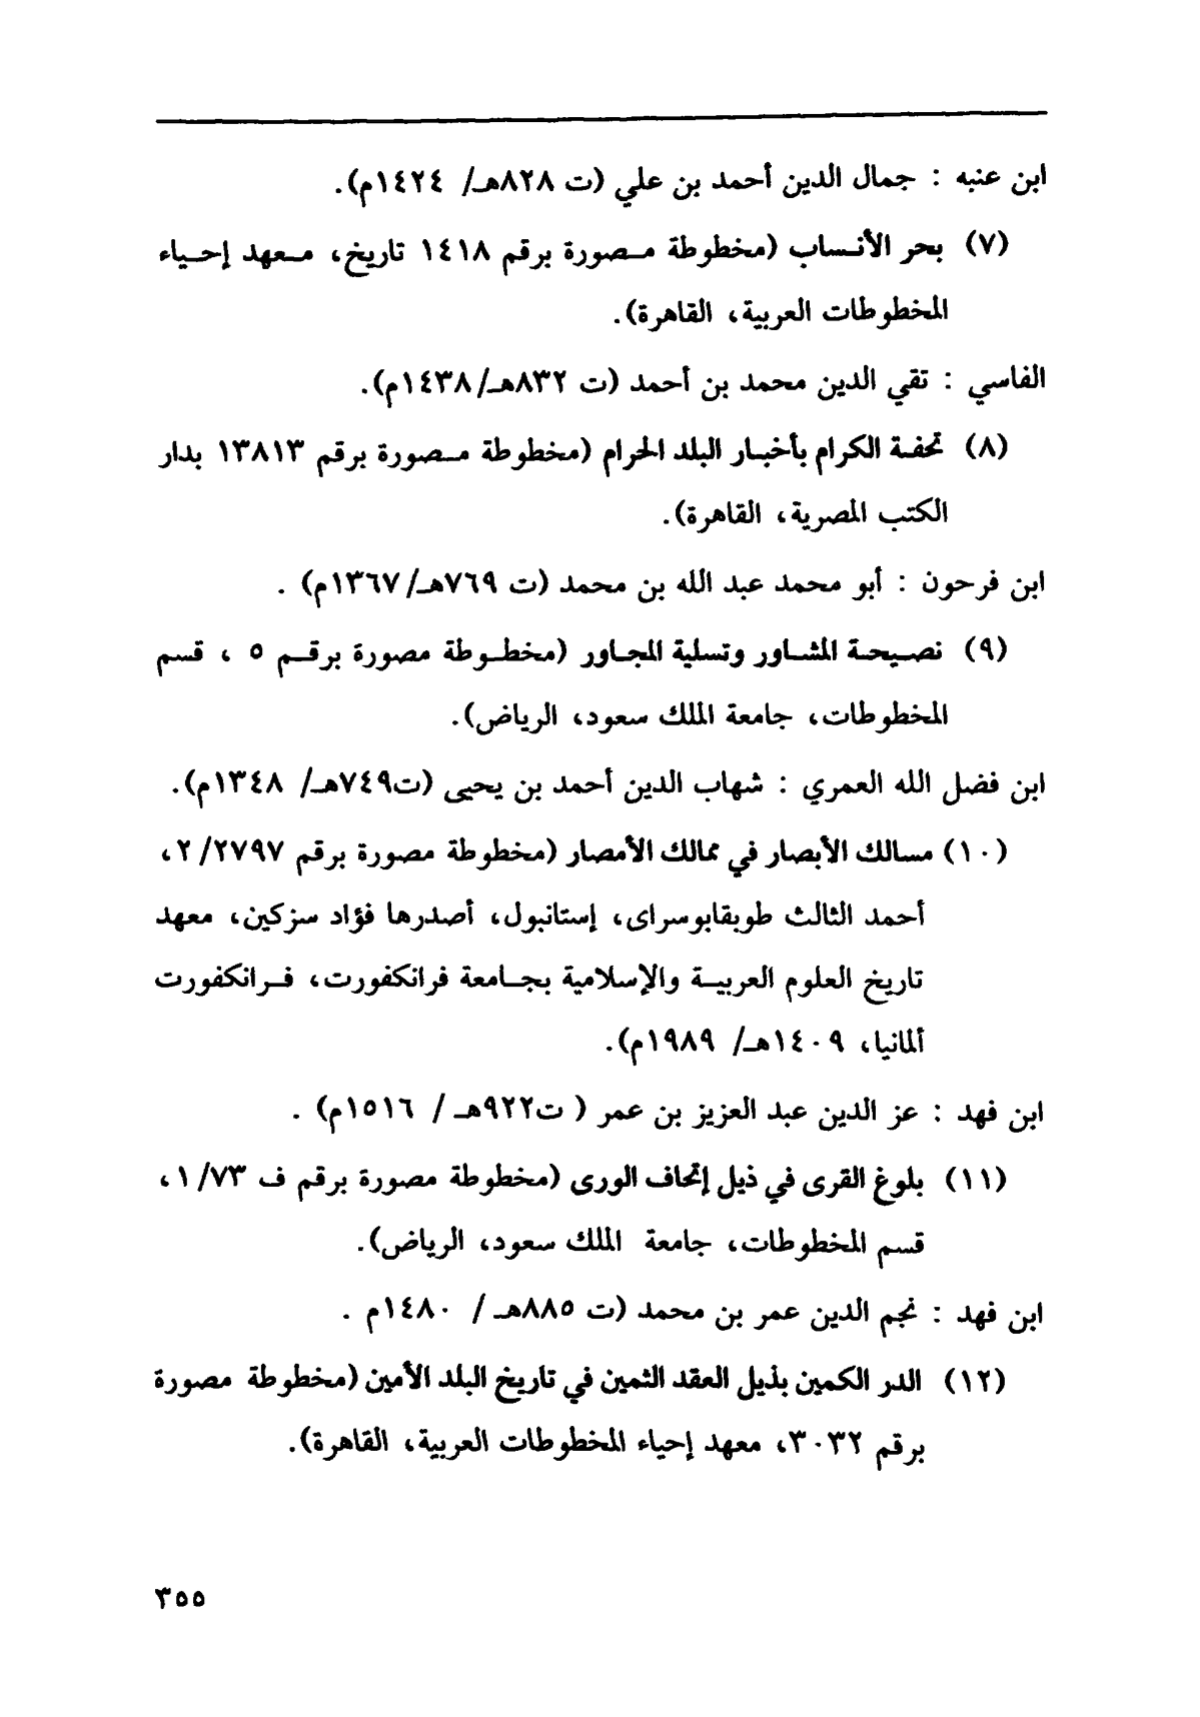 ابن عنبه : جمال الدين أحمد بن علي (ت ٨٢٨هـ/ ١٤٢٤م).
(٧) بحر الأنساب (مخطوطة مصورة برقم ١٤١٨ تاريخ، معهد إحياء
المخطوطات العربية، القاهرة).
الفاسي : تقي الدين محمد بن أحمد (ت ٨٣٢هـ/١٤٣٨م).
(٨) تحفة الكرام بأخبار البلد الحرام (مخطوطة مصورة برقم ١٣٨١٣ بدار
الكتب المصرية، القاهرة).
ابن فرحون : أبو محمد عبد الله بن محمد (ت ٧٦٩هـ/١٣٦٧م) .
(٩) نصيحة المشاور وتسلية المجاور (مخطوطة مصورة برقم ٥ ، قسم
المخطوطات، جامعة الملك سعود، الرياض).
ابن فضل الله العمري : شهاب الدين أحمد بن يحيى (ت٧٤٩هـ/ ١٣٤٨م).
(١٠) مسالك الأبصار في ممالك الأمصار (مخطوطة مصورة برقم ٢/٢٧٩٧،
أحمد الثالث طوبقابوسراى، إستانبول، أصدرها فؤاد سزكين، معهد
تاريخ العلوم العربية والإسلامية بجامعة فرانكفورت، فرانكفورت
ألمانيا، ١٤٠٩هـ/ ١٩٨٩م).
ابن فهد : عز الدين عبد العزيز بن عمر ( ت٩٢٢هـ / ١٥١٦م) .
(١١) بلوغ القرى في ذيل إتحاف الورى (مخطوطة مصورة برقم ف ١/٧٣،
قسم المخطوطات، جامعة الملك سعود، الرياض).
ابن فهد : نجم الدين عمر بن محمد (ت ٨٨٥هـ / ١٤٨٠م .
(١٢) الدر الكمين بذيل العقد الثمين في تاريخ البلد الأمين (مخطوطة مصورة
برقم ٣٠٣٢، معهد إحياء المخطوطات العربية، القاهرة).
٣٥٥